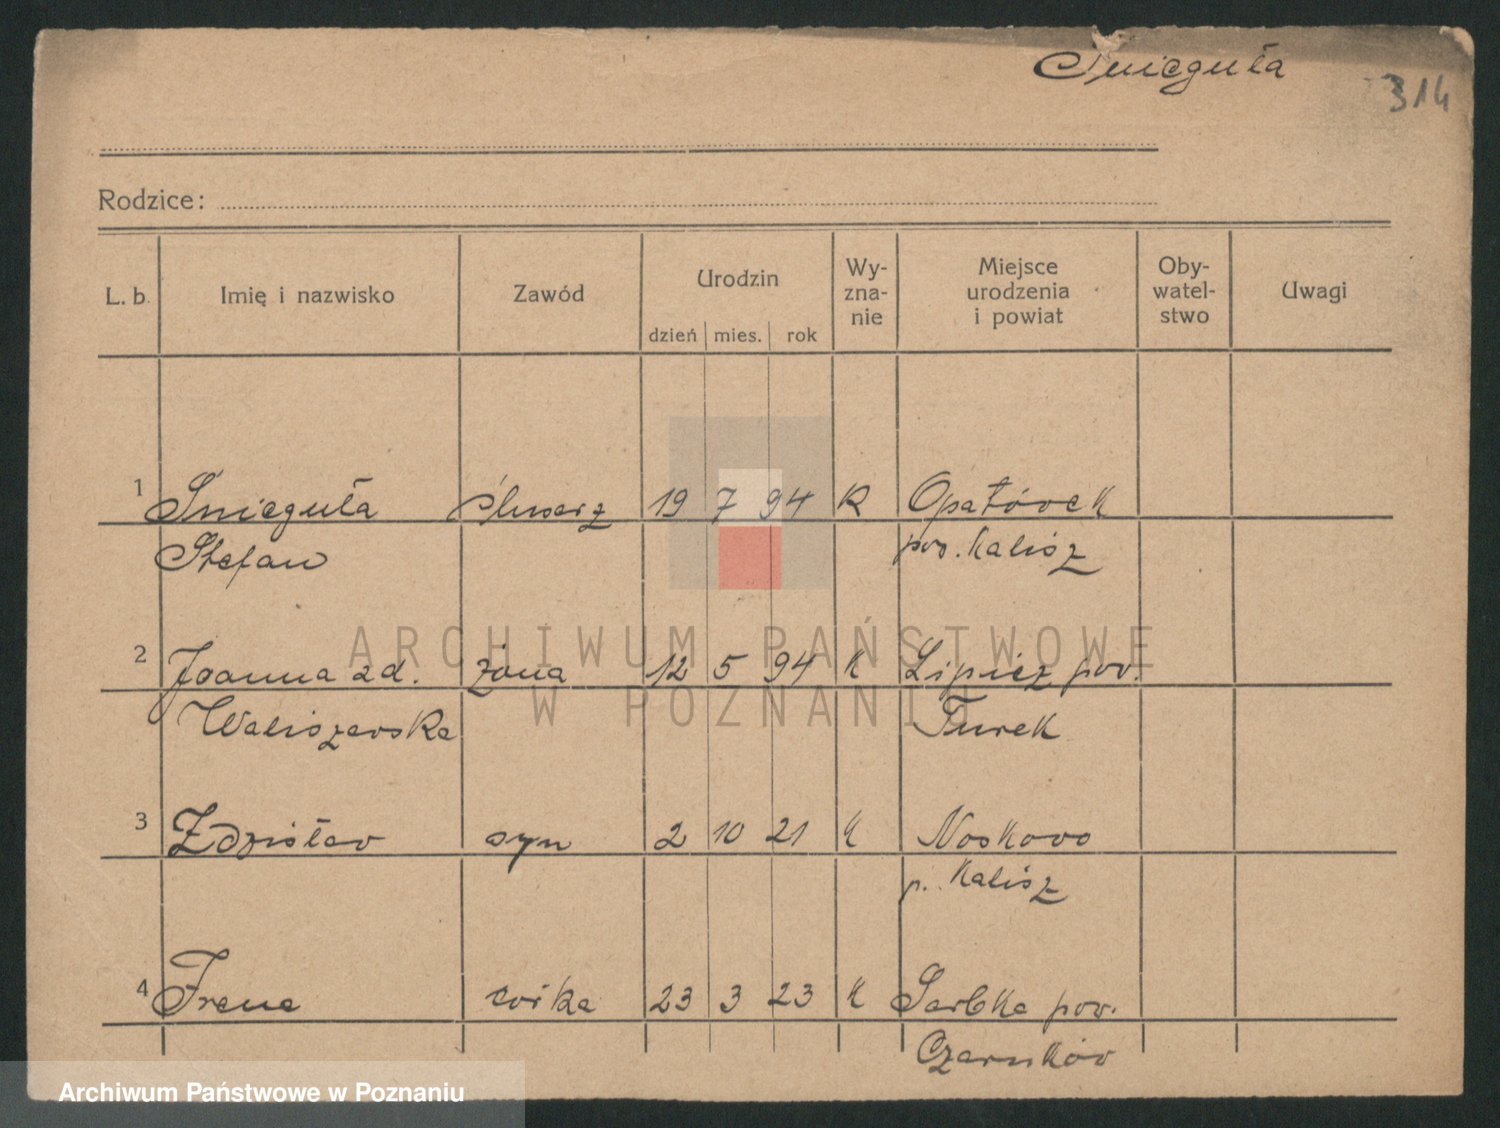 Śnieguła
314
Rodzice:
L. b. Imię i nazwisko Zawód Urodzin Wy-zna-nie Miejsce urodzenia i powiat Oby-watel-stwo Uwagi
dzień mies. rok
1 Śnieguła ślusarz 19 7 94 K Opatówek
Stefan pow. Kalisz
2 Joanna zd. żona 12 5 94 K Lipicz pow.
Waliszewska Turek
3 Zdzisław syn 2 10 21 K Noskowo
p. Kalisz
4 Irena córka 23 3 23 K Sarbka pow.
Czarnków
ARCHIWUM PAŃSTWOWE
W POZNANIU
Archiwum Państwowe w Poznaniu